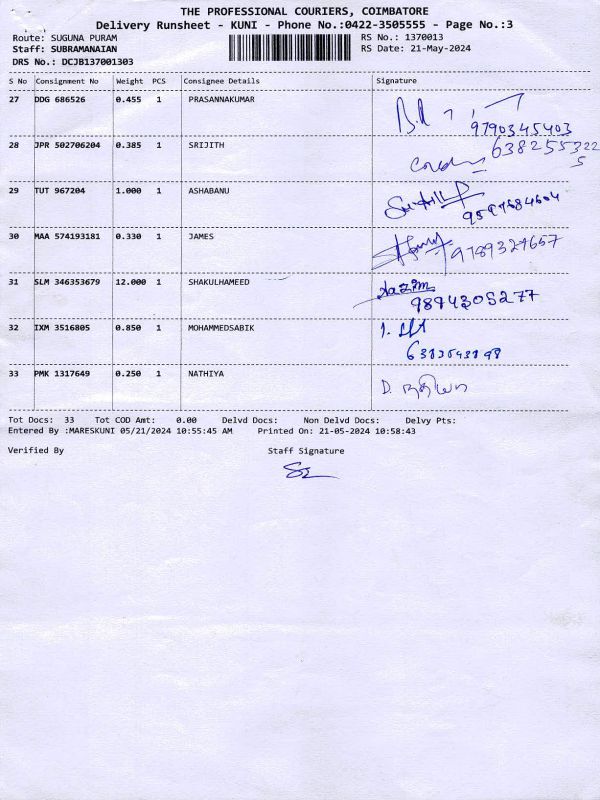 THE PROFESSIONAL COURIERS, COIMBATORE
Delivery Runsheet - KUNI - Phone No.:0422-3505555 - Page No.:3
Route: SUGUNA PURAM RS No.: 1370013
Staff: SUBRAMANAIAN RS Date: 21-May-2024
DRS No.: DCJB137001303
S No Consignment No Weight PCS Consignee Details Signature
27 DDG 686526 0.455 1 PRASANNAKUMAR
9790345403
28 JPR 502706204 0.385 1 SRIJITH
29 TUT 967204 1.000 1 ASHABANU
30 MAA 574193181 0.330 1 JAMES
9789327657
31 SLM 346353679 12.000 1 SHAKULHAMEED
9894305277
32 IXM 3516805 0.850 1 MOHAMMEDSABIK
33 PMK 1317649 0.250 1 NATHIYA
D. நதியா
Tot Docs: 33 Tot COD Amt: 0.00 Delvd Docs: Non Delvd Docs: Delvy Pts:
Entered By :MARESKUNI 05/21/2024 10:55:45 AM Printed On: 21-05-2024 10:58:43
Verified By Staff Signature